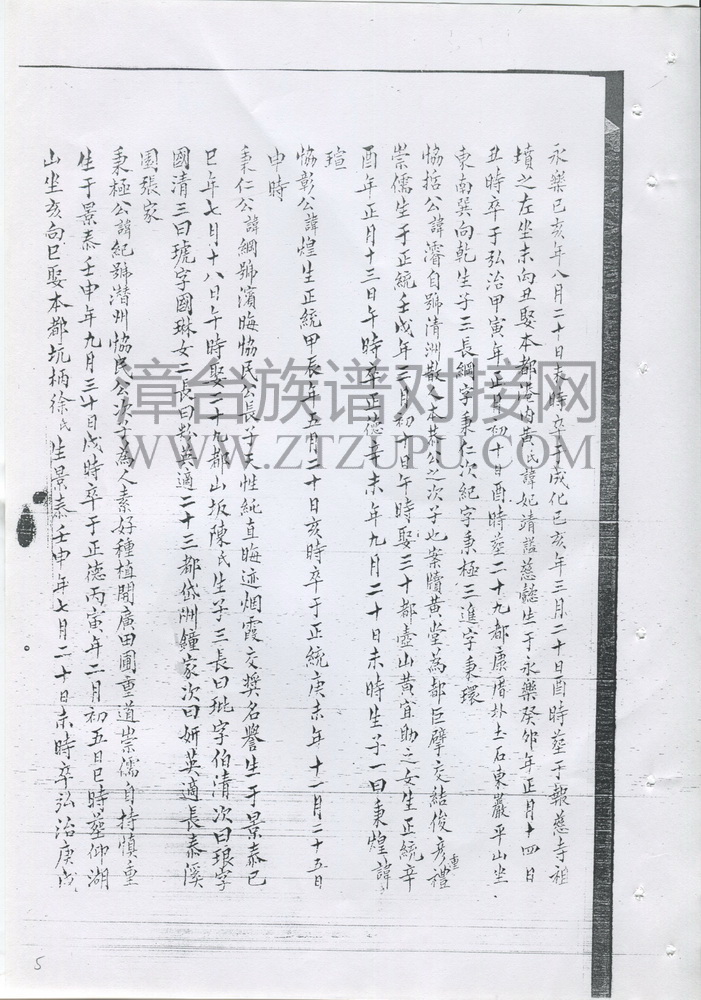 永樂己亥年八月二十日未時卒于成化己亥年三月二十日酉時塟于報慈寺祖
墳之左坐未向丑娶本都港內黃氏諱妃靖謚慈懿生于永樂癸卯年正月十四日
丑時卒于弘治甲寅年正月初十日酉時塟二十九都康厝圤土石東巖平山坐
東南巽向乾生子三長綱字秉仁次紀字秉極三進字秉環
恊括公諱濬自號清洲散人之次子也案牘黃堂為都巨擘交結俊彥禮重
崇儒生于正統壬戌年三月初十日午時娶三十都壺山黃宜助之女生正統辛
酉年正月十三日午時卒正德辛未年九月二十日未時生子一曰秉煌諱
瑄
恊彰公諱煌生正統甲辰年五月二十日亥時卒于正統庚未年十一月二十五日
申時
秉仁公諱綱號濱晦恊民公長子天性純直晦迹烟霞交獎名譽生于景泰己
巳年七月十八日午時娶二十九都山坂陳氏生子三長曰玼字伯清次曰琅字
國清三曰琥字國琳女二長曰教英適二十三都岱洲鐘家次曰妍英適長泰溪
園張家
秉極公諱紀號潜州恊民公次子為人素好種植開廣田圃重道崇儒自持慎重
生于景泰壬申年九月三十日戌時卒于正德丙寅年二月初五日巳時塟仰湖
山坐亥向巳娶本都坑柄徐氏生景泰壬申年七月二十日未時卒弘治庚戌
章台族谱对接网
WWW.ZTZUPU.COM
5